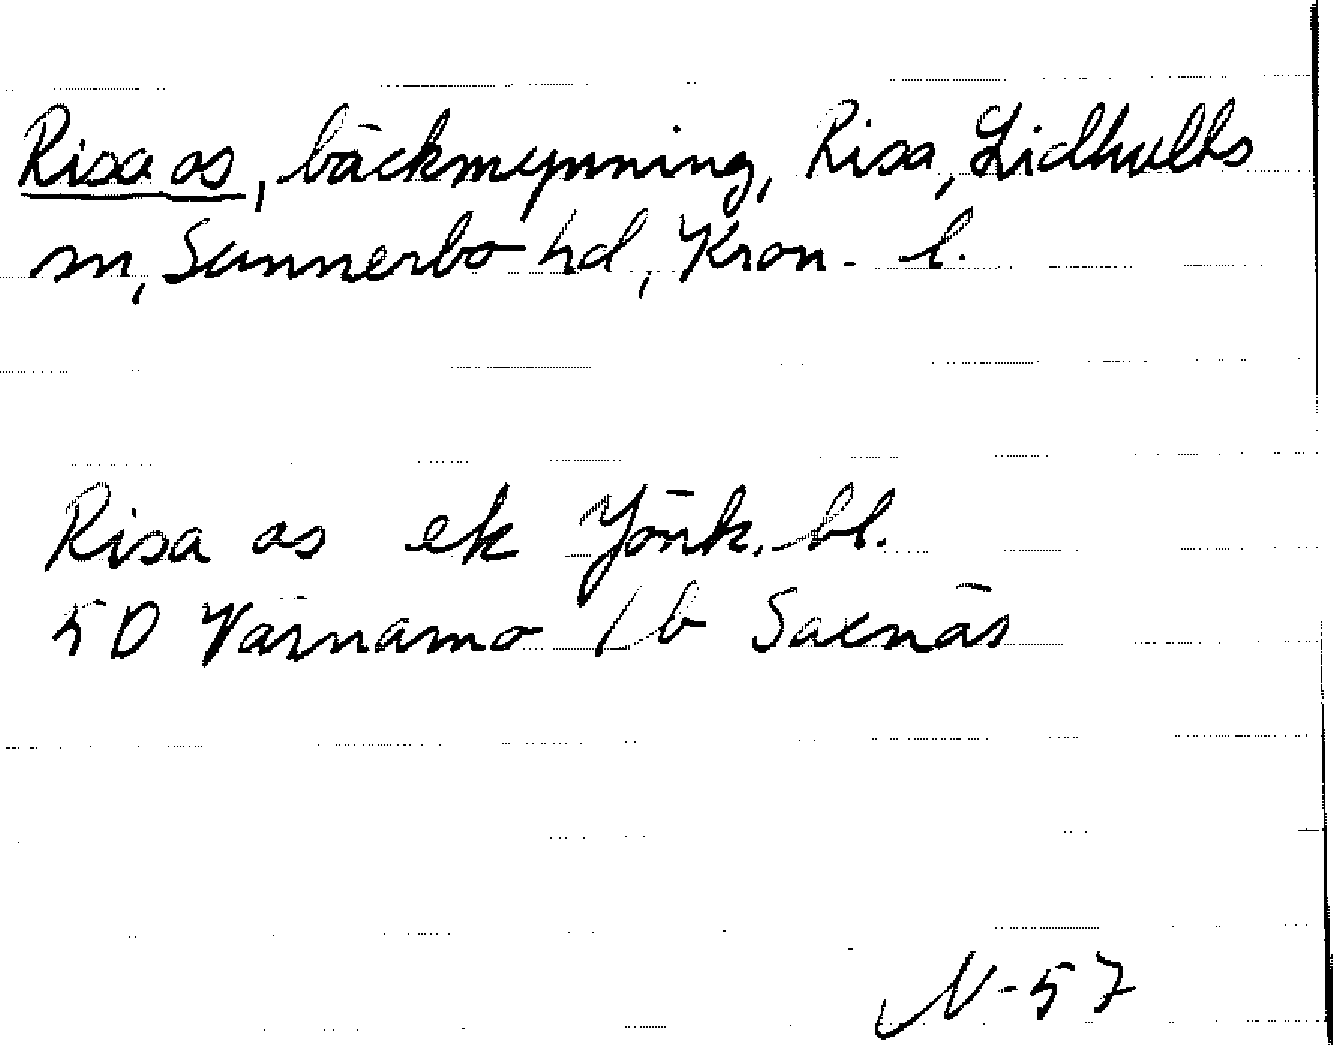 Risa os, bäckmynning, Risa, Lidhults
sn, Sunnerbo hd, Kron. l.
Risa os ek Jönk. bl.
5D Värnamo 1b Saxnäs
N-57